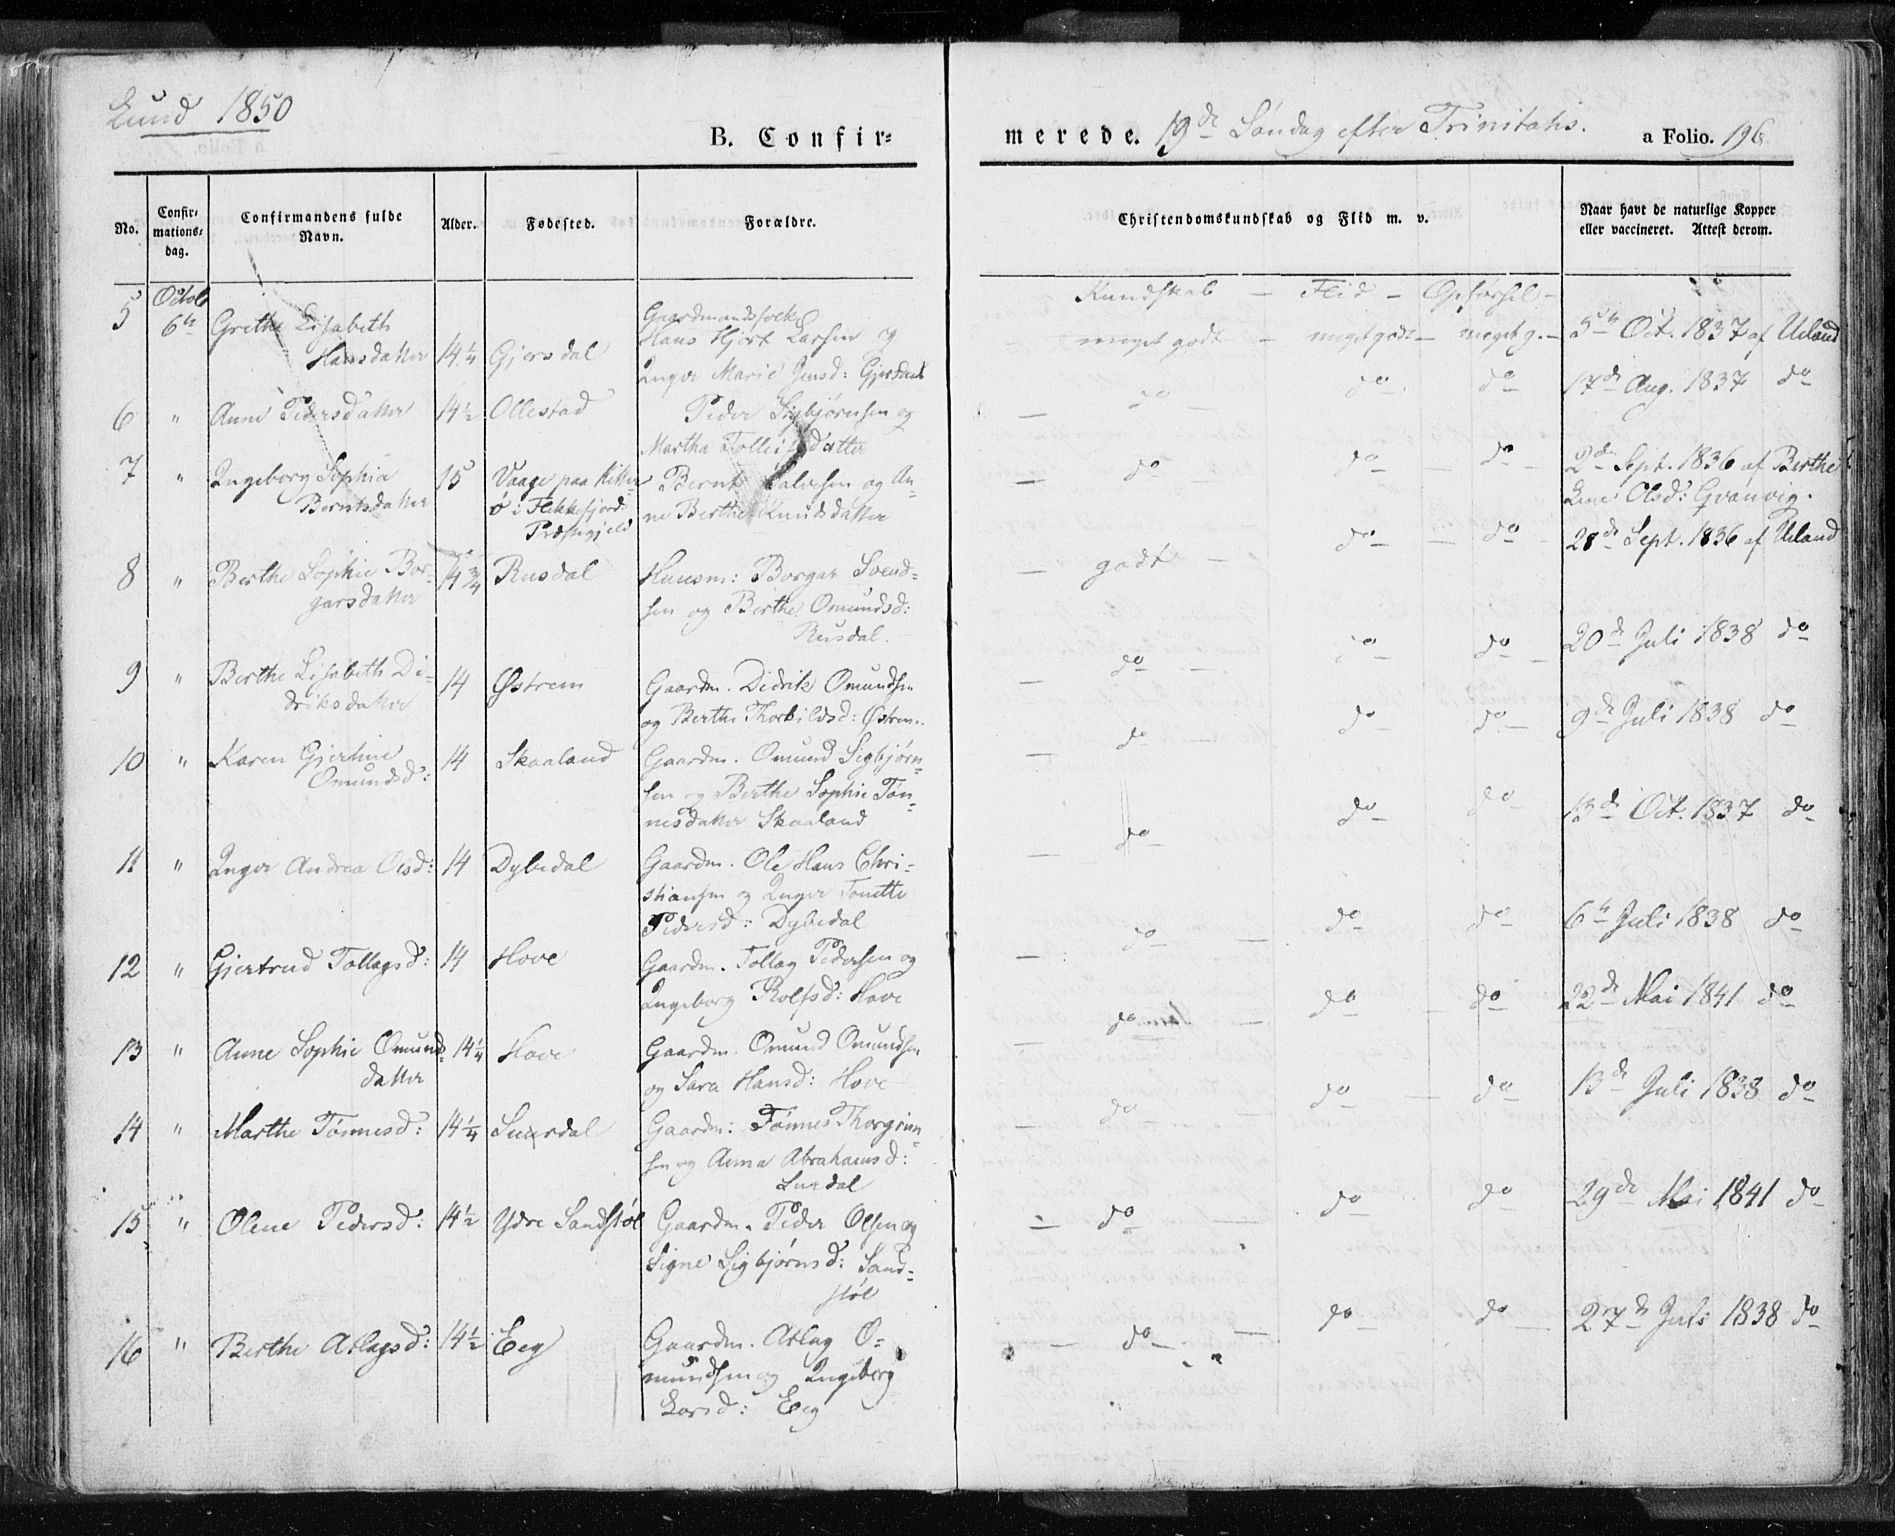 Lund 1850
B. Confir=
merede. 19de Søndag efter Trinitatis.
a Folio. 196
No.
Confir=
mations=
dag.
Confirmandens fulde
Navn.
Alder.
Fødested.
Forældre.
Christendomskundskab og Flid m. v.
Naar havt de naturlige Kopper
eller vaccineret. Attest derom.
Kundskab — Flid — Opførsel —
5 Octob
6te Grethe Lisabeth
Hansdatter 14 1/4 Gjersdal
Gaardmandsfolk
Hans Hjort Larsen og
Inger Marie Jensd: Gjersdal
meget godt — meget godt — meget g. — 5te Oct. 1837 af Ueland
6 " Anne Pedersdatter 14 1/2 Ollestad
Peder Sigbjørnsen og
Martha Tollefsdatter
— do do do 17de Aug. 1837 do
7 " Ingeborg Sophia
Berntsdatter 15 Vaage paa Hitter=
ø i Flekkefjords
Præstegjeld
Bernt Salvesen og An=
ne Berthe Knudsdatter
— do do — do — 2den Sept. 1836 af Berthe
Lene Olsd: Granvig.
8 " Berthe Sophie Bor=
garsdatter 14 3/4 Rusdal
Huusm: Borgar Svend=
sen og Berthe Omundsd:
Rusdal.
— godt — do — do — 28de Sept. 1836 af Ueland
9 " Berthe Lisabeth Di=
driksdatter 14 Østrem
Gaardm. Didrik Omundsen
og Berthe Thorkildsd: Østrem.
— do — do do — 20de Juli 1838 do
10 " Karen Gjertine
Omundsd: 14 Skaaland
Gaardm. Omund Sigbjørn=
sen og Berthe Sophie Tøn=
nesdatter Skaaland
— do do do — 9de Juli 1838 do
11 " Inger Andrea Olsd: 14 Dybedal
Gaardm. Ole Hans Chri=
stiansen og Inger Tonette
Pedersd: Dybedal
— do do do 13de Oct. 1837 do
12 " Gjertrud Tollagsd: 14 Hove
Gaardm. Tollag Pedersen og
Ingeborg Rolfsd: Hove
— do — do do 6te Juli 1838 do
13 " Anne Sophie Omunds=
datter 14 1/4 Hove
Gaardm. Omund Omundsen
og Sara Hansd: Hove
— do — do — do 22de Mai 1841 do
14 " Marthe Tønnesd: 14 1/4 Suurdal
Gaardm: Tønnes Thorgrim=
sen og Anna Abrahamsd:
Surdal
— do — do — do 13de Juli 1838 do
15 " Olene Pedersd: 14 1/2 Ydre Sandstøl
Gaardm. Peder Olsen og
Signe Sigbjørnsd: Sand=
støl
— do do do 29de Mai 1841 do
16 " Berthe Atlagsd: 14 1/2 Eeg
Gaardm. Atlag O=
mundsen og Ingeborg
Larsd: Eeg
— do — do do — 27de Juli 1838 do